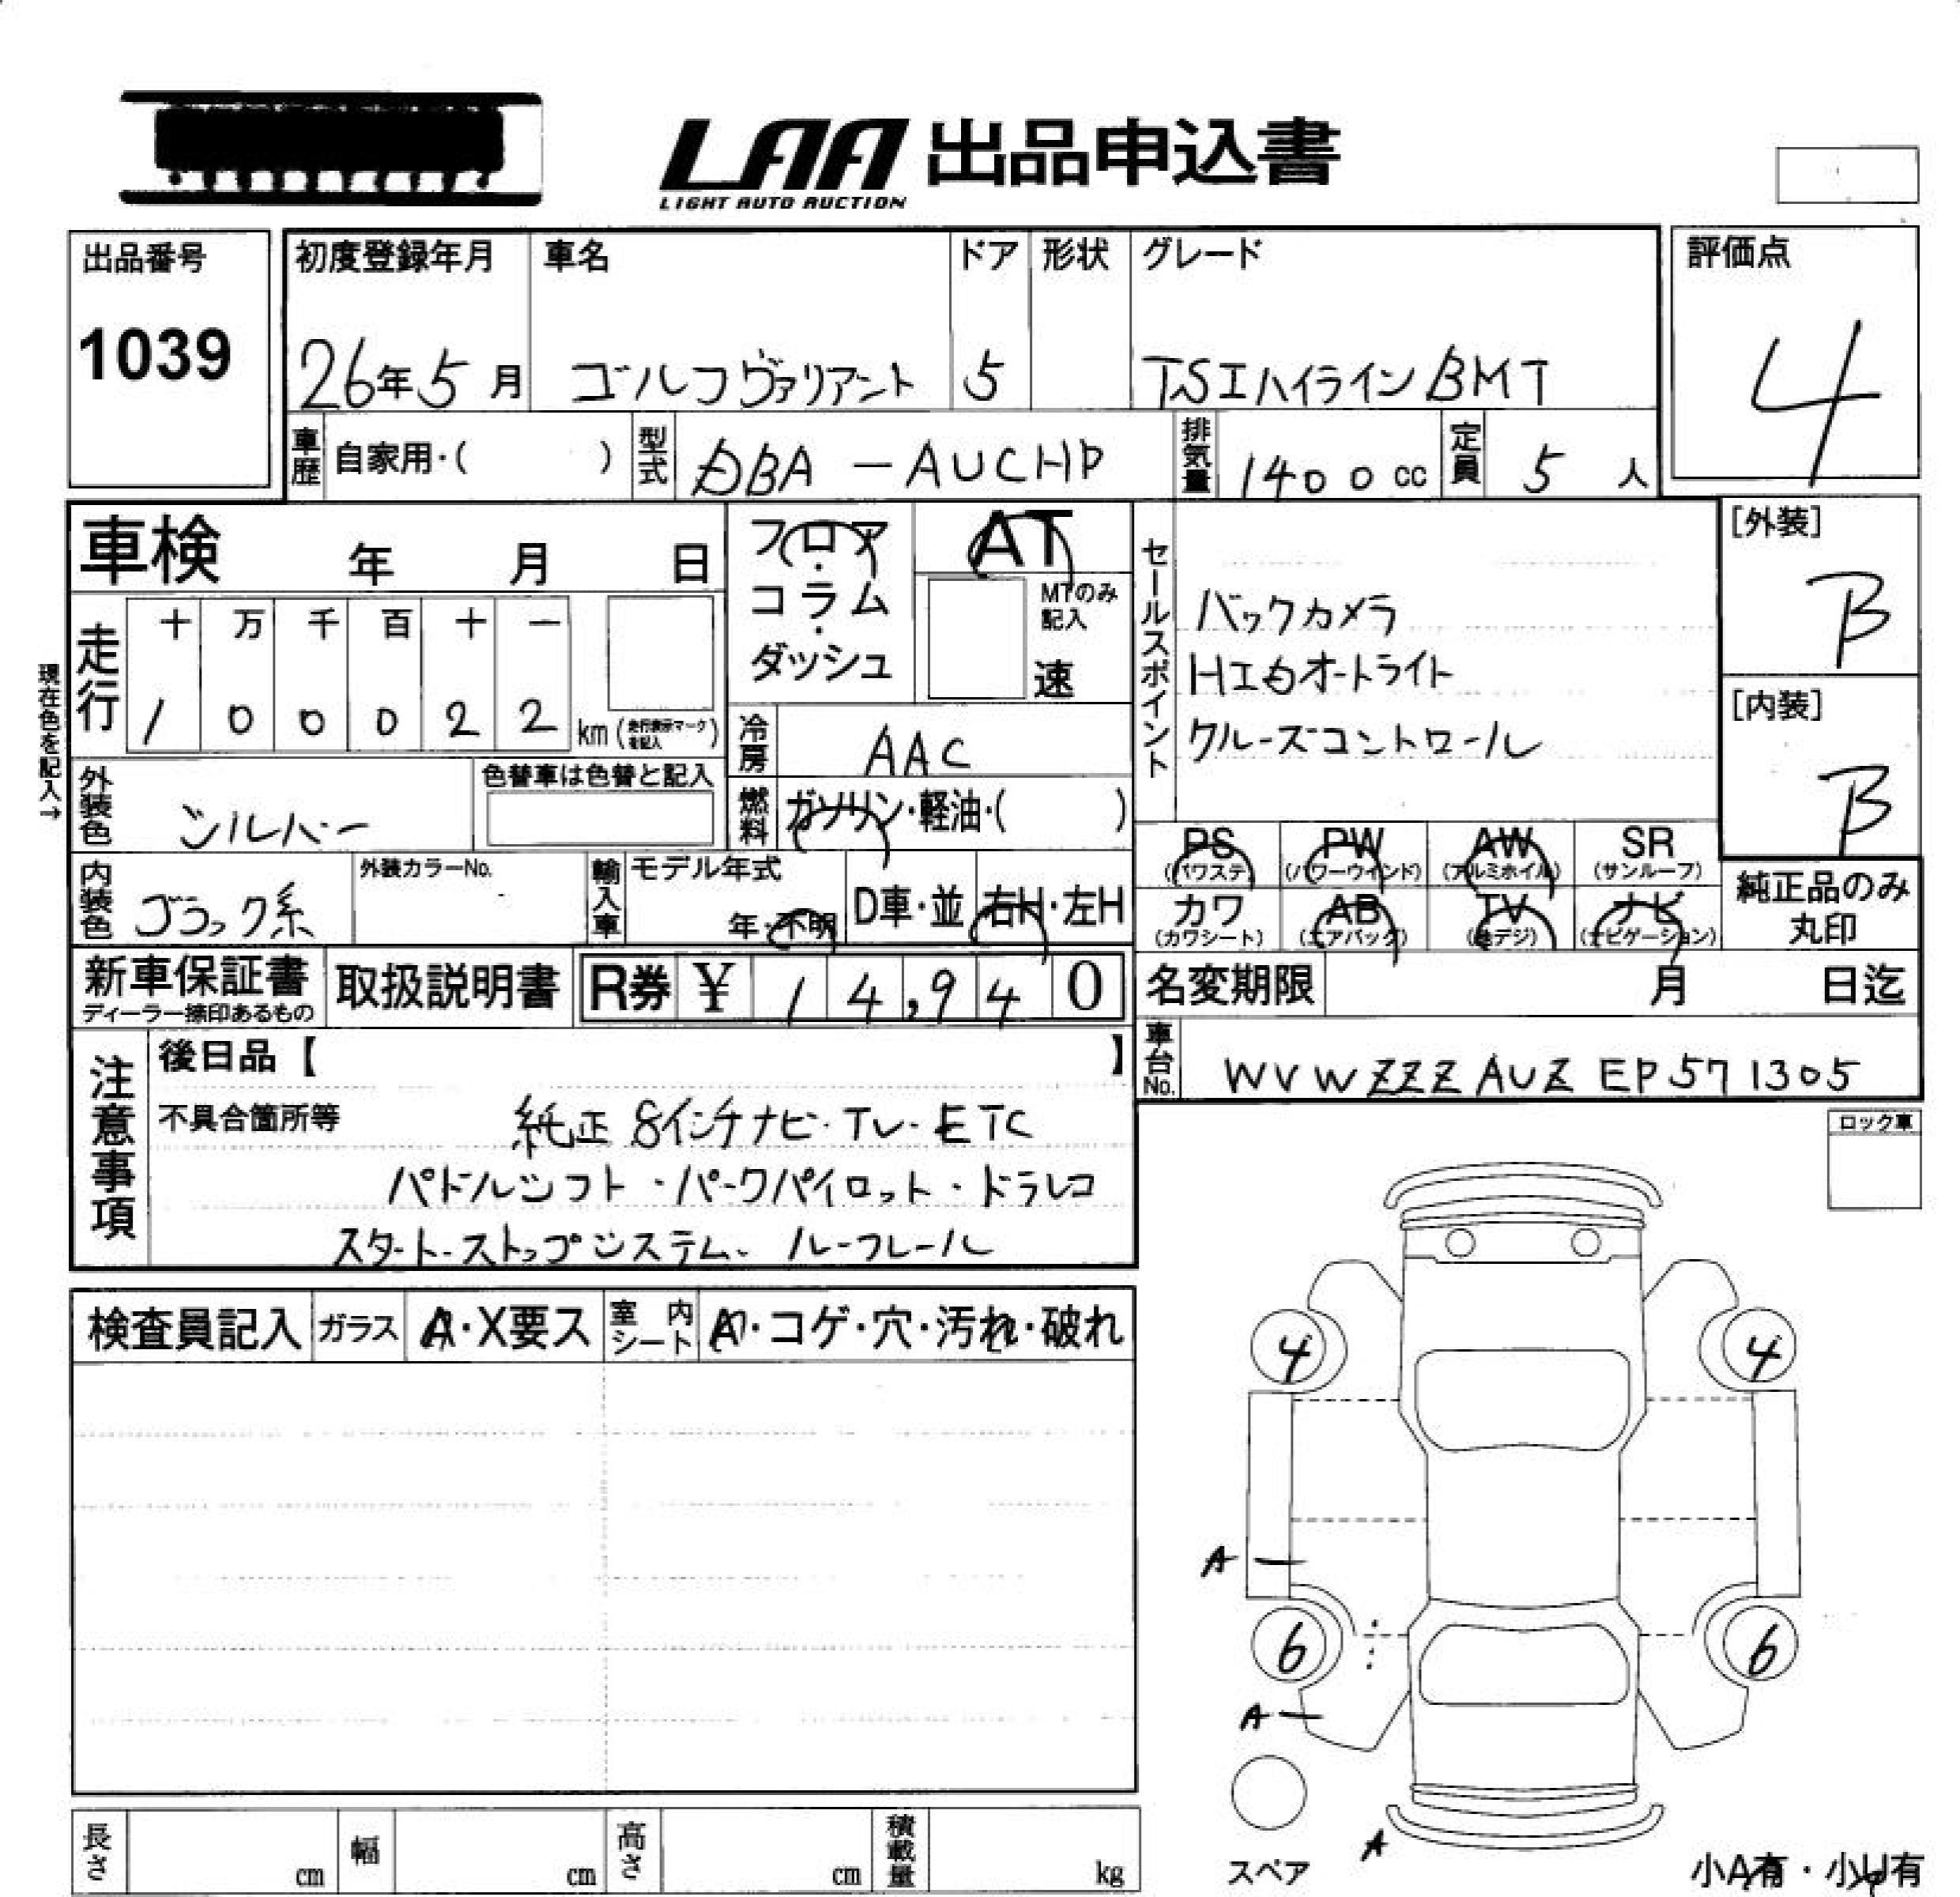 LAA 出品申込書
LIGHT AUTO AUCTION
出品番号
1039
初度登録年月
26年5月
車名
ゴルフヴァリアント
ドア
5
形状
グレード
TSIハイラインBMT
評価点
4
車歴 自家用・( )
型式 DBA-AUCHP
排気量 1400cc
定員 5人
車検 年 月 日
走行
十 万 千 百 十 一
1 0 0 0 2 2 km (走行表示マークを記入)
現在色を記入→
外装色 シルバー
色替車は色替と記入
内装色 ブラック系
外装カラーNo.
輸入車
モデル年式
年・不明
D車・並
右H・左H
フロア
・
コラム
・
ダッシュ
AT
MTのみ記入
速
冷房 AAC
燃料 ガソリン・軽油・( )
セールスポイント
バックカメラ
HIDオートライト
クルーズコントロール
[外装]
B
[内装]
B
PS (パワステ) PW (パワーウインド) AW (アルミホイル) SR (サンルーフ)
カワ (カワシート) AB (エアバック) TV (地デジ) ナビ (ナビゲーション)
純正品のみ
丸印
新車保証書
ディーラー捺印あるもの
取扱説明書
R券 ¥ 14,940
名変期限 月 日迄
車台No. WVWZZZAUZEP571305
注意事項
後日品【 】
不具合箇所等
純正8インチナビ・TV・ETC
パドルシフト・パークパイロット・ドラレコ
スタート・ストップシステム・ルーフレール
ロック車
検査員記入 ガラス A・X要ス 室内シート A・コゲ・穴・汚れ・破れ
4 4
A
6 6
A
A
スペア
小A有・小U有
長さ cm 幅 cm 高さ cm 積載量 kg